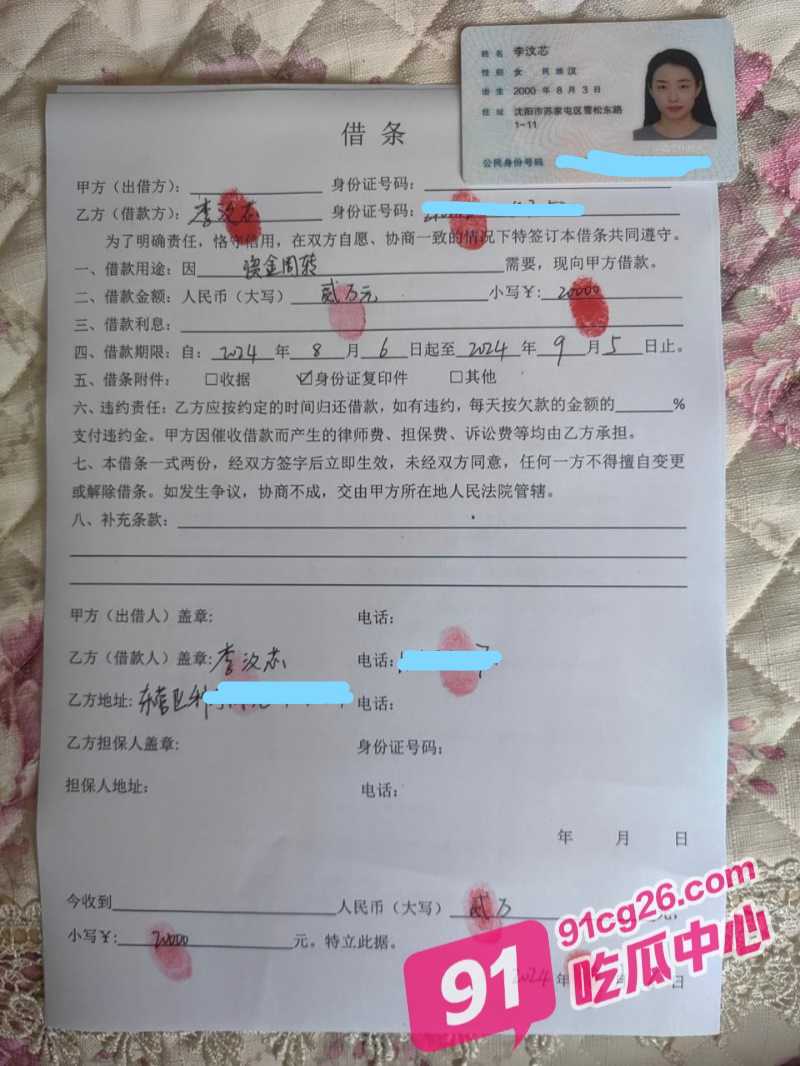 姓名
性别 女 民族 汉
出生
住址
公民身份号码
借条
甲方（出借方）： 身份证号码：
乙方（借款方）： 身份证号码：
为了明确责任，恪守信用，在双方自愿、协商一致的情况下特签订本借条共同遵守。
一、借款用途：因 资金周转 需要，现向甲方借款。
二、借款金额：人民币（大写） 贰万元 小写￥：20000
三、借款利息：
四、借款期限：自：2024 年 8 月 6 日起至 2024 年 9 月 5 日止。
五、借条附件： □收据 ☑身份证复印件 □其他
六、违约责任：乙方应按约定的时间归还借款，如有违约，每天按欠款的金额的 %
支付违约金。甲方因催收借款而产生的律师费、担保费、诉讼费等均由乙方承担。
七、本借条一式两份，经双方签字后立即生效，未经双方同意，任何一方不得擅自变更
或解除借条。如发生争议，协商不成，交由甲方所在地人民法院管辖。
八、补充条款：
甲方（出借人）盖章: 电话:
乙方（借款人）盖章: 电话:
乙方地址: 电话:
乙方担保人盖章: 身份证号码:
担保人地址: 电话:
年 月 日
今收到 人民币（大写） 贰万
小写￥: 20000 元。特立此据。
2024 年 日
91
91cg26.com
吃瓜中心